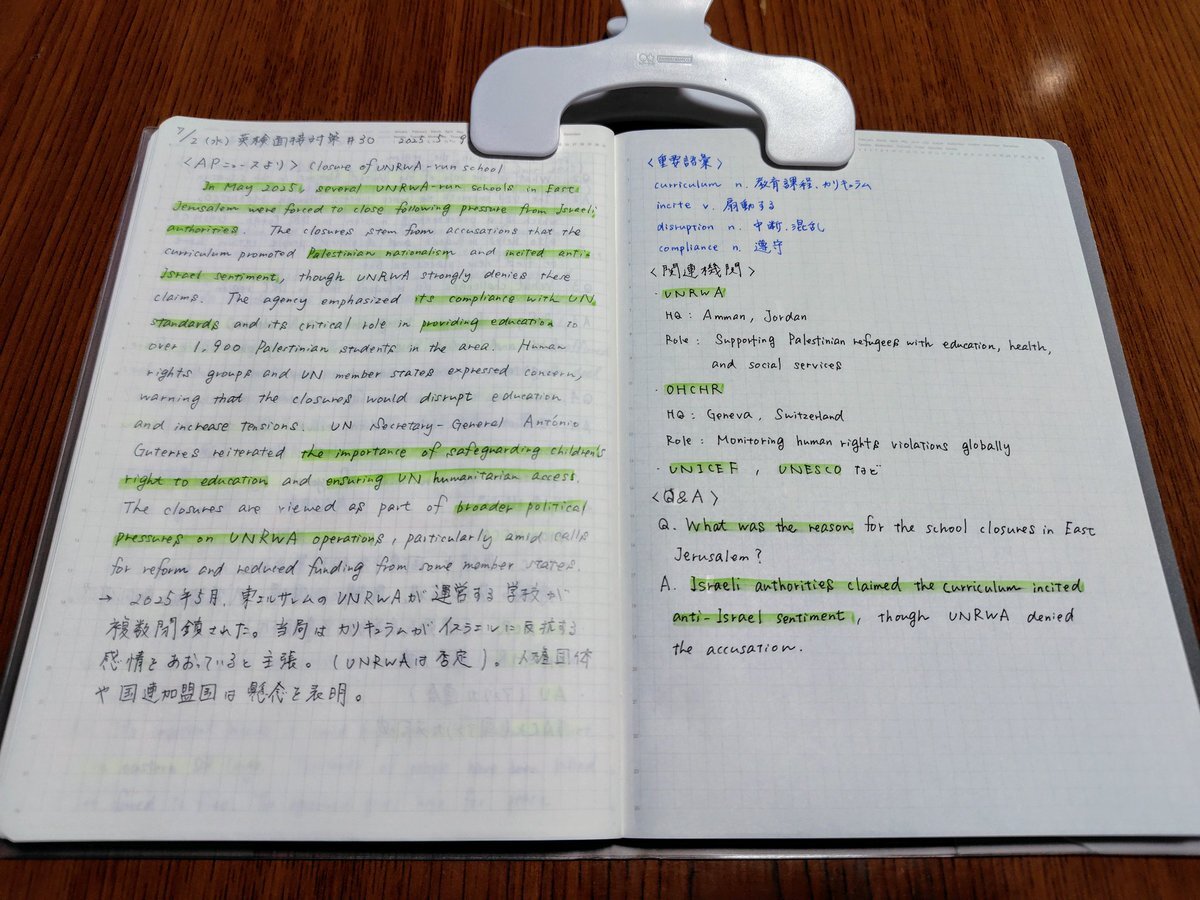 7/2 (水) 英検面接対策 #30 2025.5.9
<APニュースより> Closure of UNRWA-run school
In May 2025, several UNRWA-run schools in East
Jerusalem were forced to close following pressure from Israeli
authorities. The closures stem from accusations that the
curriculum promoted Palestinian nationalism and incited anti-
Israel sentiment, though UNRWA strongly denies these
claims. The agency emphasized its compliance with UN
standards and its critical role in providing education to
over 1,900 Palertinian students in the area. Human
rights groups and UN member states expressed concern,
warning that the closures would disrupt education
and increase tensions. UN Secretary-General António
Guterres reiterated the importance of safeguarding children's
right to education and ensuring UN humanitarian access.
The closures are viewed as part of broader political
pressures on UNRWA operations, particularly amid calls
for reform and reduced funding from some member states.
→ 2025年5月、東エルサレムのUNRWAが運営する学校が
複数閉鎖された。当局はカリキュラムがイスラエルに反抗する
感情をあおっていると主張。(UNRWAは否定)。人権団体
や国連加盟国は懸念を表明。
<重要語彙>
curriculum n. 教育課程、カリキュラム
incite v. 扇動する
disruption n. 中断、混乱
compliance n. 遵守
<関連機関>
・UNRWA
HQ: Amman, Jordan
Role: Supporting Palestinian refugees with education, health,
and social services
・OHCHR
HQ: Geneva, Switzerland
Role: Monitoring human rights violations globally
・UNICEF, UNESCO など
<Q&A>
Q. What was the reason for the school closures in East
Jerusalem?
A. Israeli authorities claimed the curriculum incited
anti-Israel sentiment, though UNRWA denied
the accusation.